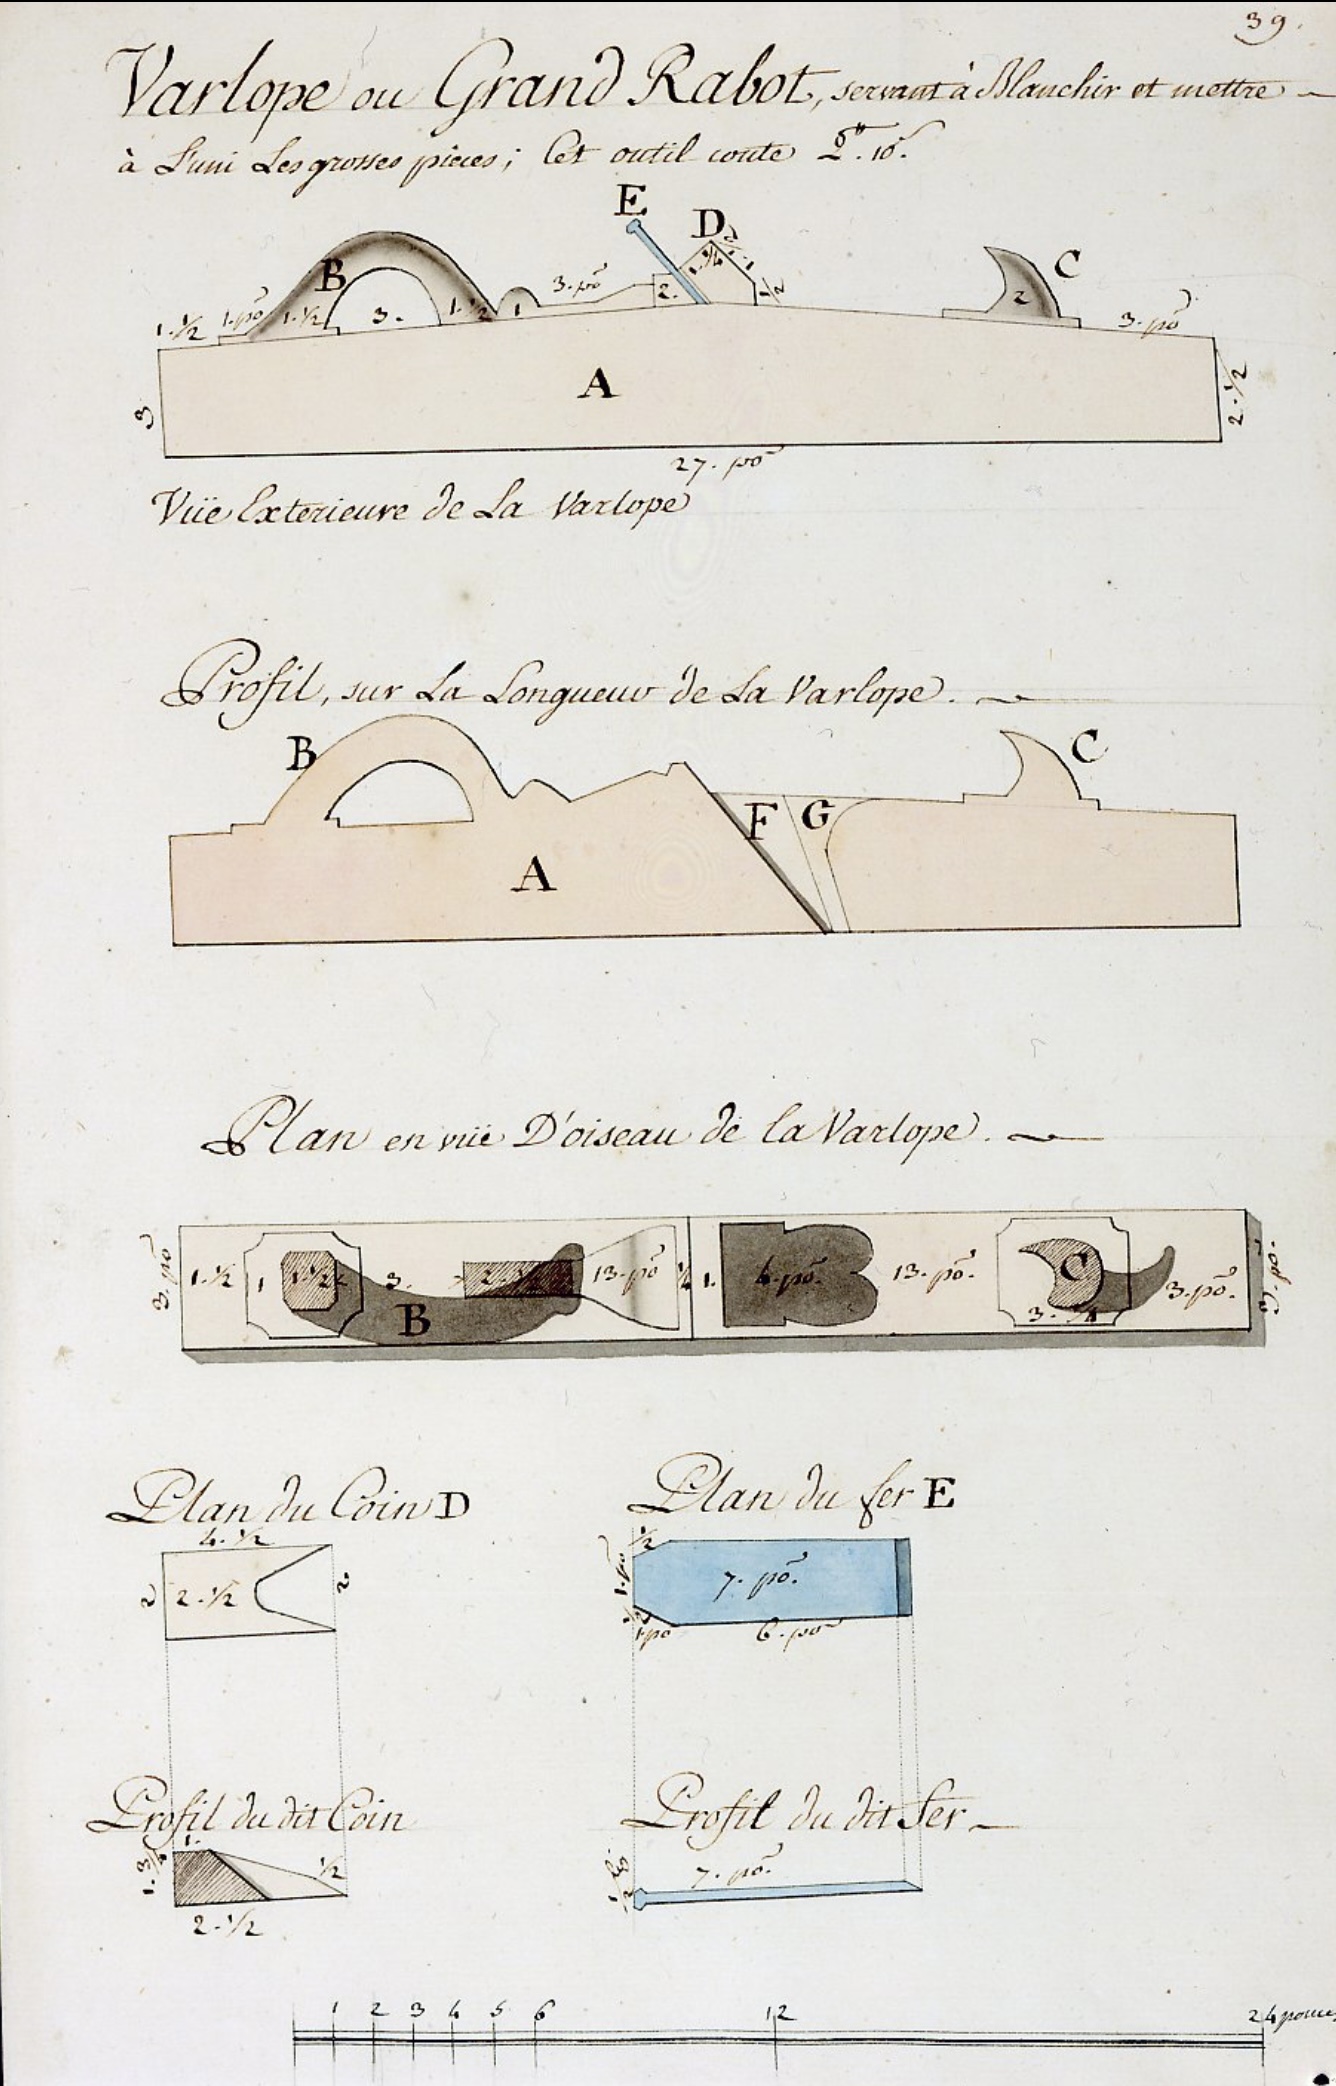 39.
Varlope ou Grand Rabot, servant à Blanchir et mettre
à L'uni Les grosses pieces; Cet outil coute 2.tt 10.s
E
D
B
C
1. 1/2 1. po 1. 1/2 3. 1. 1/2 1 3. po 2. 1. 3/4 2. 1 1/2 2 3. po
3 A 2. 1/2
27. po
Vüe Exterieure de La Varlope
Profil, sur La Longueur de La Varlope.
B C
F G
A
Plan en vüe D'oiseau de la Varlope.
3. po 1. 1/2 1 1. 1/2 3. 2. 1/2 13. po 1/4 1. 4. po. 13. po. C 3. po. 3. po.
B 3. 3/4
Plan du Coin D
4. 1/2
2 2. 1/2 2
Plan du fer E
1/2
1. po 7. po.
1/2
1 po 6. po
Profil du dit Coin
1.
1. 3/4 1/2
2. 1/2
Profil du dit fer
7. po.
1 2 3 4 5 6 12 24 pouces